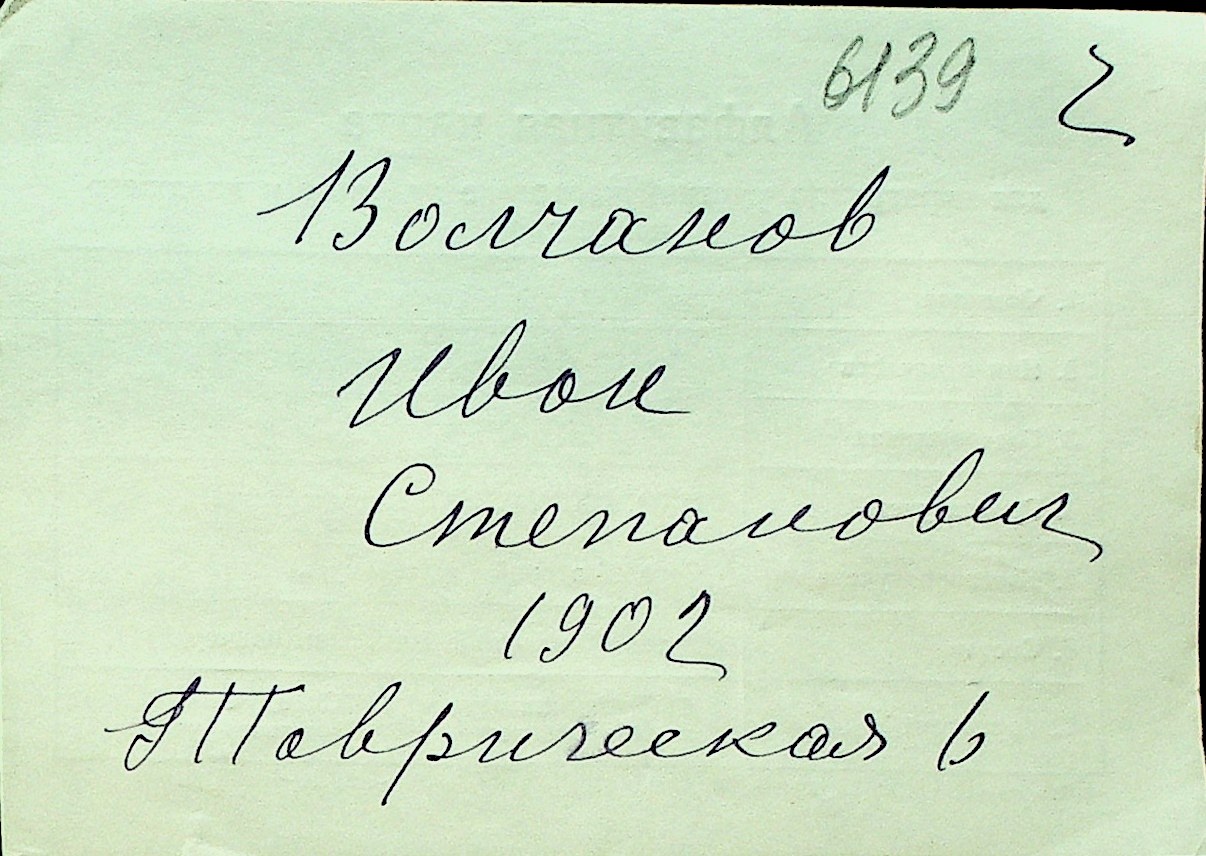 6139 2
Волчанов
Иван
Степанович
1902
Таврическая 6